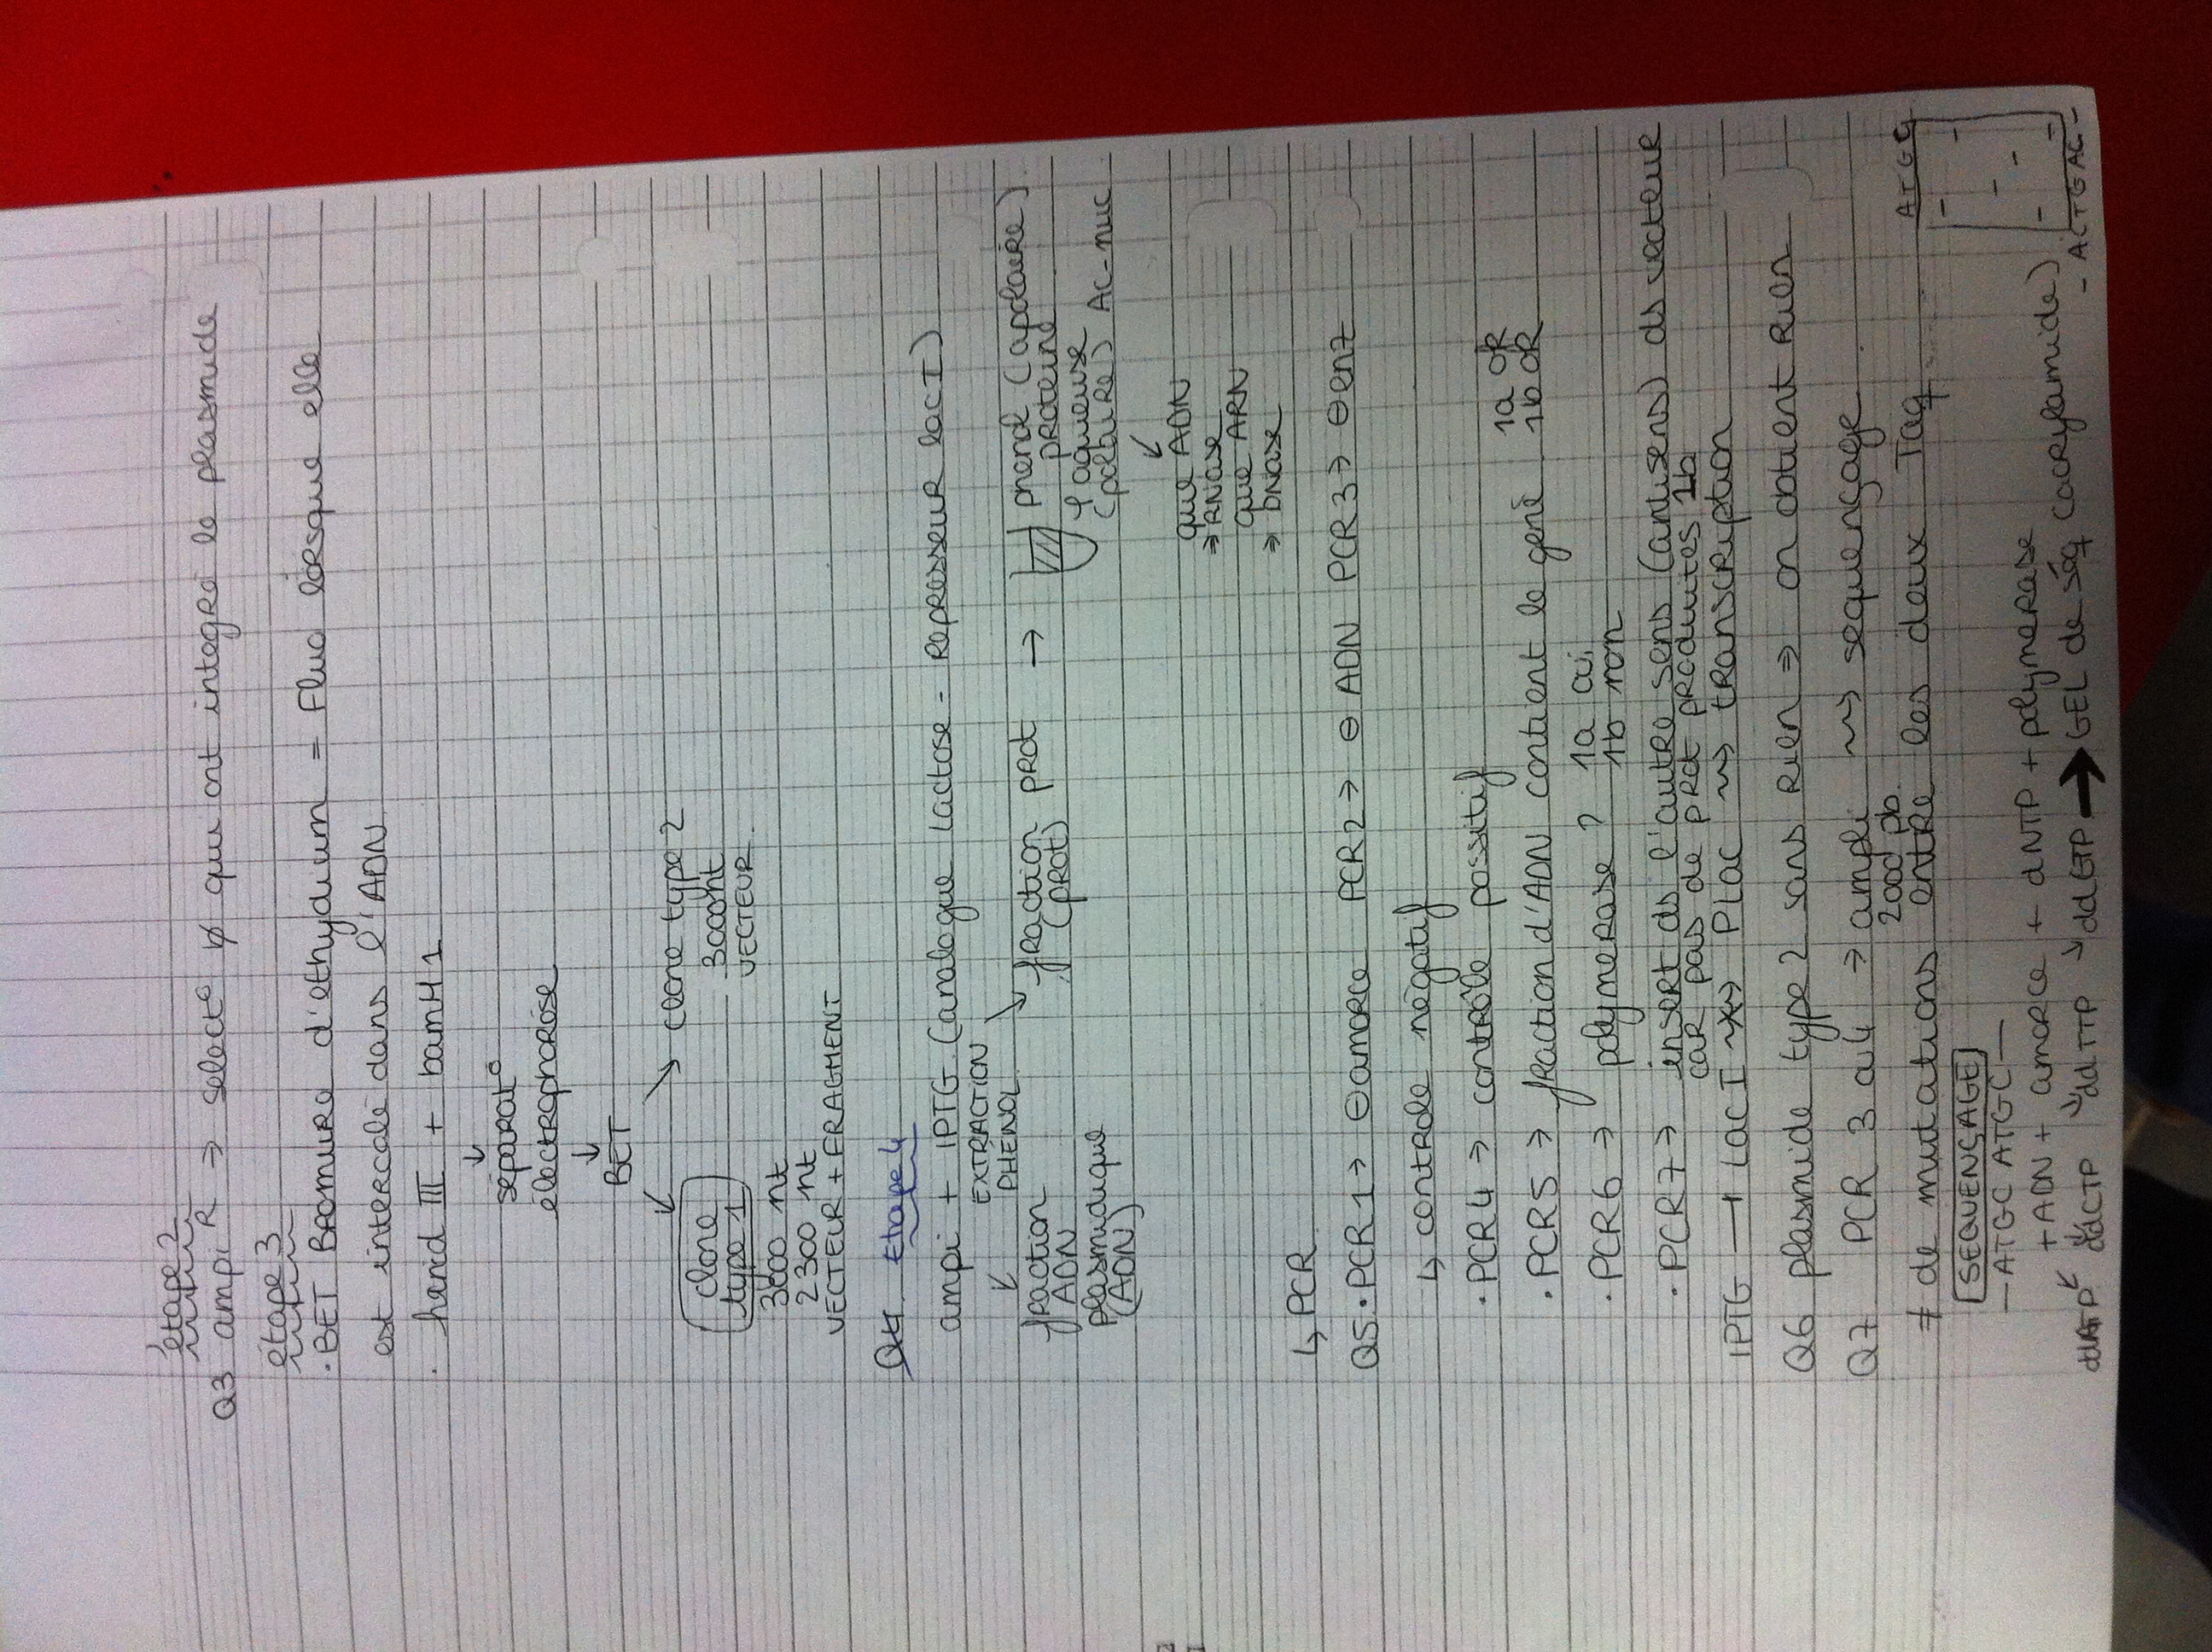 étape 2
Q3 ampi R → select° qui ont intégré le plasmide
étape 3
. BET Bromure d'ethydium = Fluo lorsque elle
est intercalé dans l'ADN
. hind III + bamH1
↓
séparat°
électrophorèse
↓
BET
↙ ↘ clone type 2
clone 3000nt
type 1 VECTEUR
3000 nt
2300 nt
VECTEUR + FRAGMENT
Q4. Etape 4
ampi + IPTG (analogue lactose - represseur lacI)
EXTRACTION
PHÉNOL
fraction ADN plasmidique (ADN)
fraction prot (prot) →
phenol (apolaire)
proteine
φ aqueuse
(polaire) Ac-nuc
↙
que ADN
⇒ RNase
que ARN
⇒ DNase
↳ PCR
Q5. • PCR1 → ⊖ amorce PCR2 → ⊖ ADN PCR3 → ⊖ enz
↳ controle négatif
• PCR4 → contrôle possitif
• PCR5 → fraction d'ADN contient le gene 1a OK 1b OK
• PCR6 → polymerase ? 1a oui 1b non
• PCR7 → insert ds l'autre sens (antisens) ds vecteur
car pas de prot produites 1b
IPTG ⊣ LacI PLac ⇝ transcription
Q6 plasmide type 2 sans rien ⇒ on obtient rien
Q7 PCR 3 a 4 → ampli ⇝ sequençage
2000 pb.
≠ de mutations entre les deux Taq
SEQUENÇAGE
— ATGC ATGC —
+ ADN + amorce + dNTP + polymerase
ddATP ddCTP ddTTP ddGTP → GEL de séq (acrylamide)
- ACTGAC -